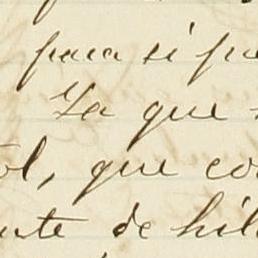 para si pe
Ya que
ol, que co
nte de hil